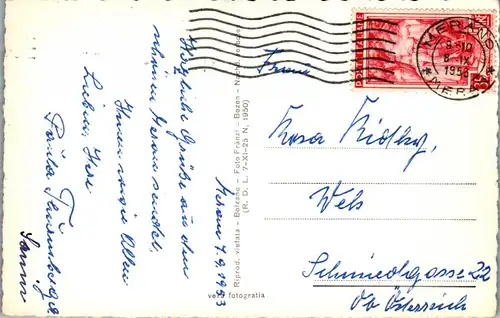 Meran 7.9.1953
Herzliche Grüße aus dem
schönen Meran sendet
Ihnen sowie Allen
Lieben, Ihre
Paula
Riprod. vietata - Bolzano - Foto Fränzl - Bozen - Nachdr. verboten
(R. D. L. 7-XI-25 N, 1950)
vera fotografia
POSTE ITALIANE
MERANO
8-IX
1953
MERANO
Frau
Rosa
Wels
Schmiedtgasse 22
Ob Österreich